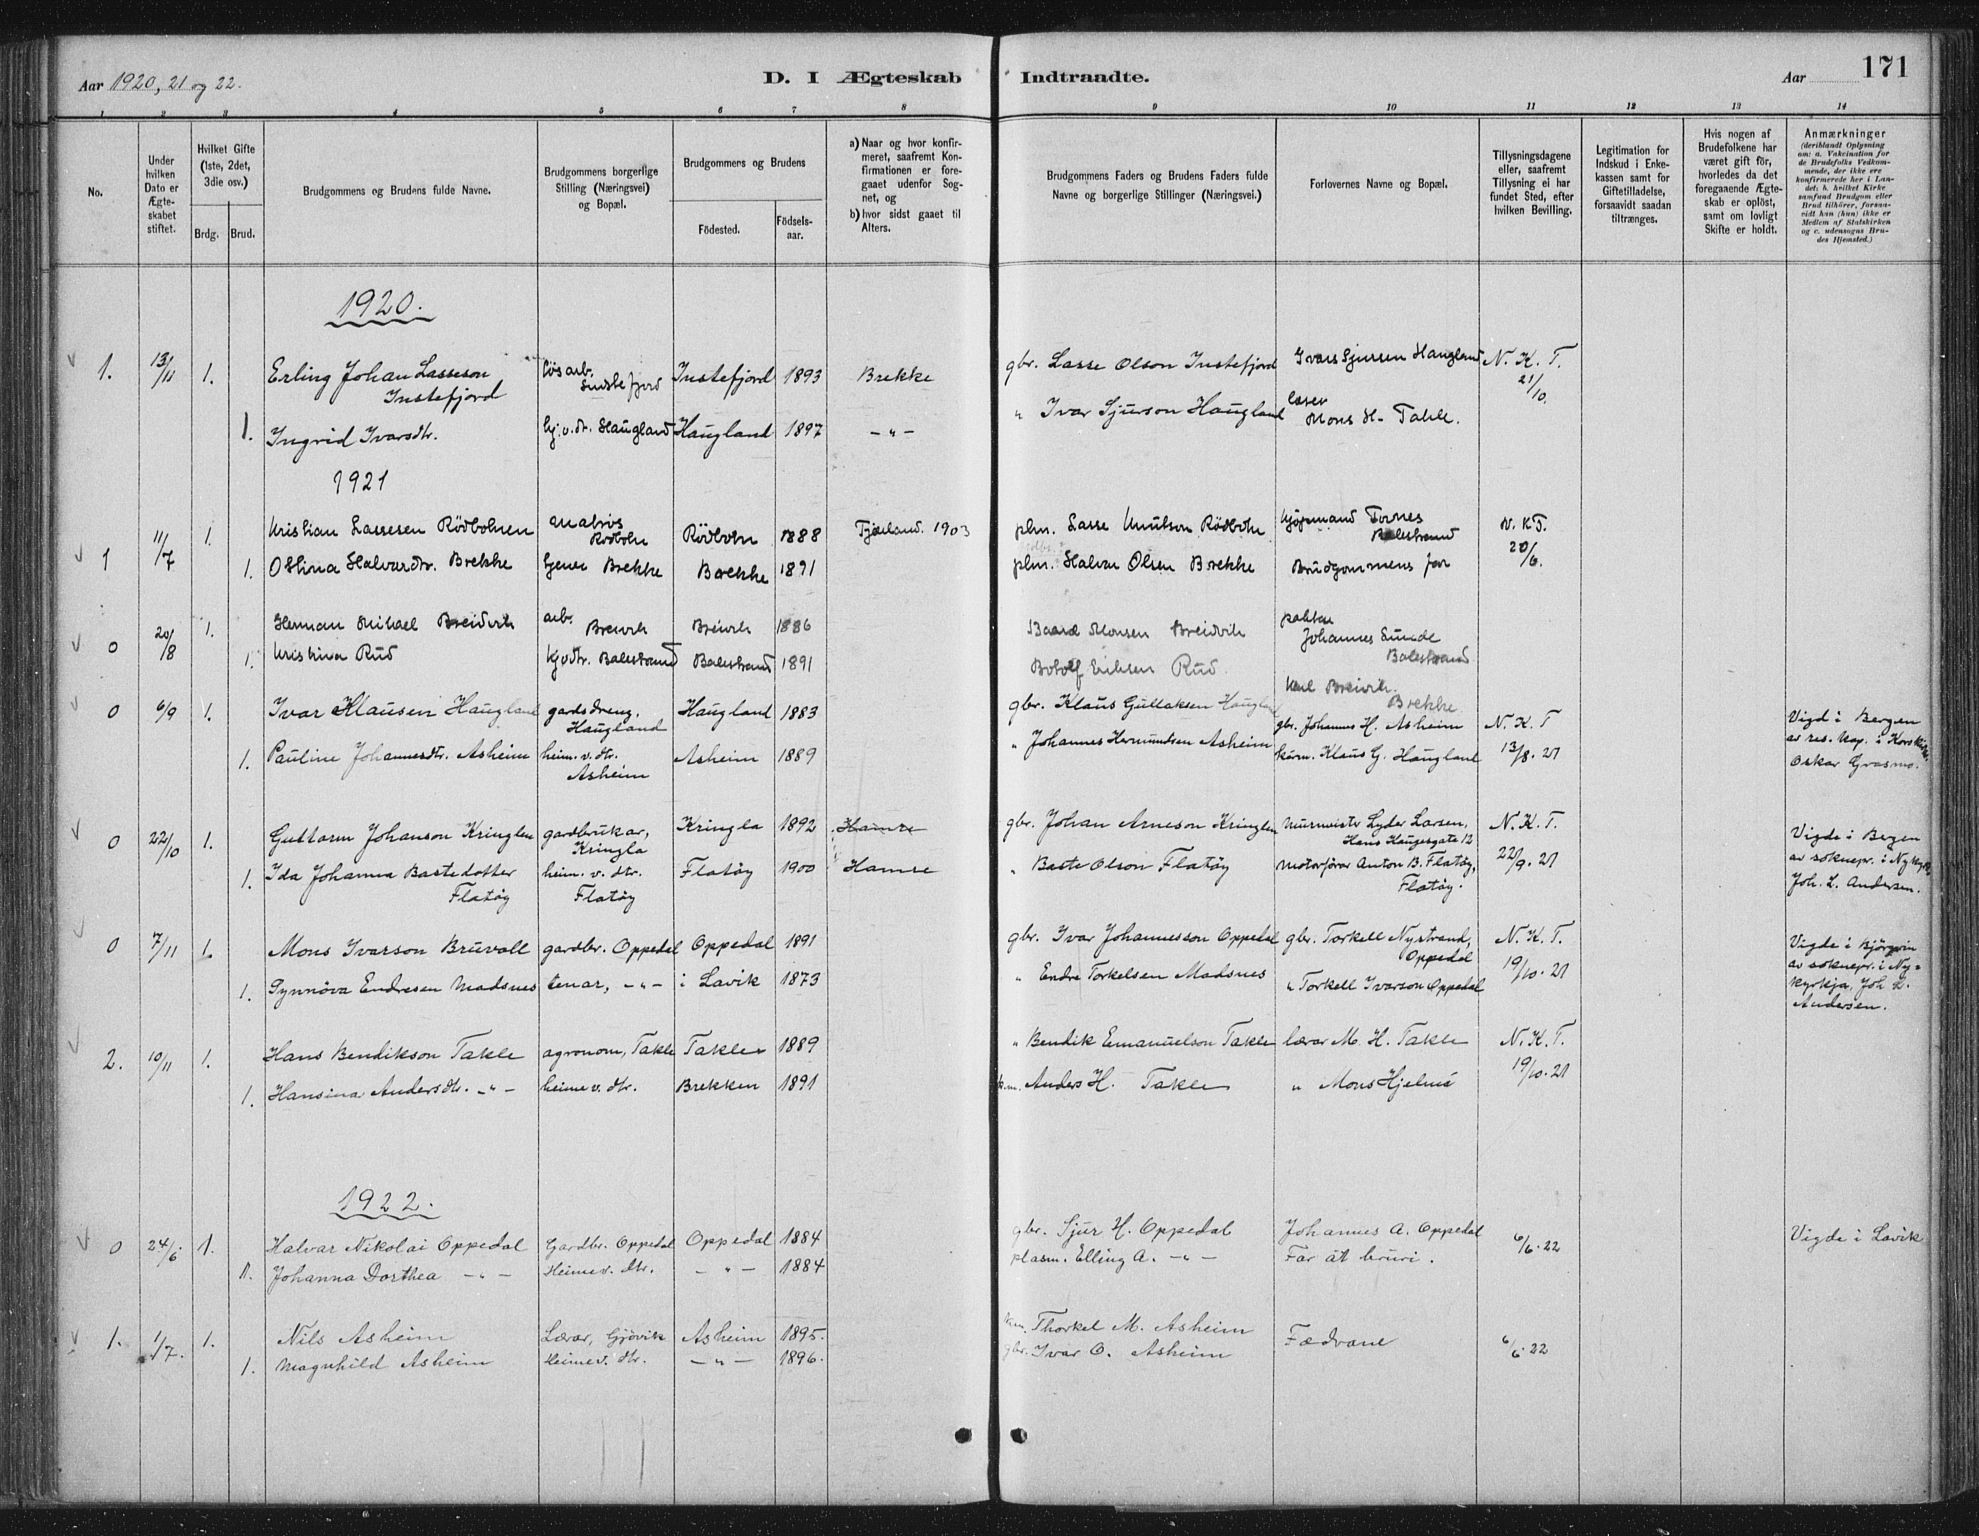 Aar 1920, 21 og 22.
D. I Ægteskab Indtraadte.
Aar 171
1 2 3 4 5 6 7 8 9 10 11 12 13 14
No.
Under hvilken Dato er Ægteskabet stiftet.
Hvilket Gifte (1ste, 2det, 3die osv.)
Brdg. Brud.
Brudgommens og Brudens fulde Navne.
Brudgommens borgerlige Stilling (Næringsvei) og Bopæl.
Brudgommens og Brudens
Fødested.
Fødselsaar.
a) Naar og hvor konfirmeret, saafremt Konfirmationen er foregaaet udenfor Sognet, og
b) hvor sidst gaaet til Alters.
Brudgommens Faders og Brudens Faders fulde Navne og borgerlige Stillinger (Næringsvei.)
Forlovernes Navne og Bopæl.
Tillysningsdagene eller, saafremt Tillysning ei har fundet Sted, efter hvilken Bevilling.
Legitimation for Indskud i Enkekassen samt for Giftetilladelse, forsaavidt saadan tiltrænges.
Hvis nogen af Brudefolkene har været gift før, hvorledes da det foregaaende Ægteskab er opløst, samt om lovligt Skifte er holdt.
Anmærkninger (deriblandt Oplysning om: a. Vakcination for de Brudefolks Vedkommende, der ikke ere konfirmerede her i Landet; b. hvilket Kirkesamfund Brudgom eller Brud tilhører, forsaavidt han (hun) ikke er Medlem af Statskirken og c. udensogns Brudes Hjemsted.)
1920.
1. 13/11 1. Erling Johan Lasseson Instefjord løsarb. Instefjord Instefjord 1893 Brekke gbr. Lasse Olson Instefjord Ivars Sjursen Haugland N. K. T. 21/10.
1. Ingrid Ivarsdtr. hj.v.dtr. Haugland Haugland 1897 – " – " Ivar Sjurson Haugland lærer Mons H. Takle.
1921
1 11/7 1. Kristian Lassesen Rödbotnen matros Rödbotn Rödbotn 1888 Fjærland. 1903 plm. Lasse Knutson Rödbotn kjøpmand Tornes Balestrand N. K. T. 20/6.
1. Oltina Halvardtr. Brekke tjener Brekke Brekke 1891 plm. Halvar Olsen Brekke Brudgommens far
0 20/8 1. Herman Mikael Breidvik arb. Breivik Breivik 1886 Baard Monsen Breidvik Johannes Sunde Balestrand
1. Kristina Rud hjvdtr. Balestrand Balestrand 1891 Botolf Eriksen Rud. Karl Breivik. Brekke
0 6/9 1. Ivar Klausen Haugland gardsdreng, Haugland Haugland 1883 gbr. Klaus Gullaksen Haugland gbr. Johannes H. Asheim N. K. T 13/8. 21 Vigd i Bergen av res. kap. i Korskirken Oskar Grasmo.
1. Pauline Johannesdtr. Asheim heim. v. dtr. Asheim Asheim 1889 " Johannes Hermundsen Asheim kårm. Klaus G. Haugland
0 22/10 1. Guttorm Johanson Kringlen gardbrukar, Kringla Kringla 1892 Hamre gbr. Johan Arneson Kringlen murmeister Lyder Larsen, Hans Haugesgate 12 N. K. T. 22/9. 21 Vigde i Bergen av soknepr. i Nykyrkja Joh. L. Andersen.
1. Ida Johanna Bastedotter Flatøy heim. v. dtr. Flatøy Flatøy 1900 Hamre " Baste Olson Flatøy motorförer Anton B. Flatøy, Flatøy.
0 7/11 1. Mons Ivarson Bruvoll gardbr. Oppedal Oppedal 1891 gbr. Ivar Johannesson Oppedal gbr. Torkell Nystrand, Oppedal N. K. T. 19/10. 21 Vigde i Bjørgvin av soknepr. i Nykyrkja, Joh L. Andersen.
1. Synnöva Endresen Madsnes tenar, – " – i Lavik 1873 " Endre Torkelsen Madsnes " Torkell Ivarson Oppedal
2. 10/11 1. Hans Bendikson Takle agronom, Takle Takle 1889 " Bendik Emanuelson Takle lærar M. H. Takle N. K. T. 19/10. 21
1. Hansina Andersdtr. – " – heime v. dtr. Brekken 1891 k.m. Anders H. Takle " Mons Hjelme
1922.
0 24/6 1. Halvar Nikolai Oppedal Gardbr. Oppedal Oppedal 1884 gbr. Sjur H. Oppedal Johannes A. Oppedal 6/6. 22 Vigde i Lavik
1. Johanna Dorthea – " – Heime v. dtr. – " – 1884 plasm. Elling A. – " – Far åt bruri.
1. 1/7. 1. Nils Asheim Lærar, Gjövik Asheim 1895. km. Thorkel M. Asheim Fædrane 6/6. 22
1. Magnhild Asheim Heime v. dtr. – " – 1896. gbr. Ivar O. Asheim